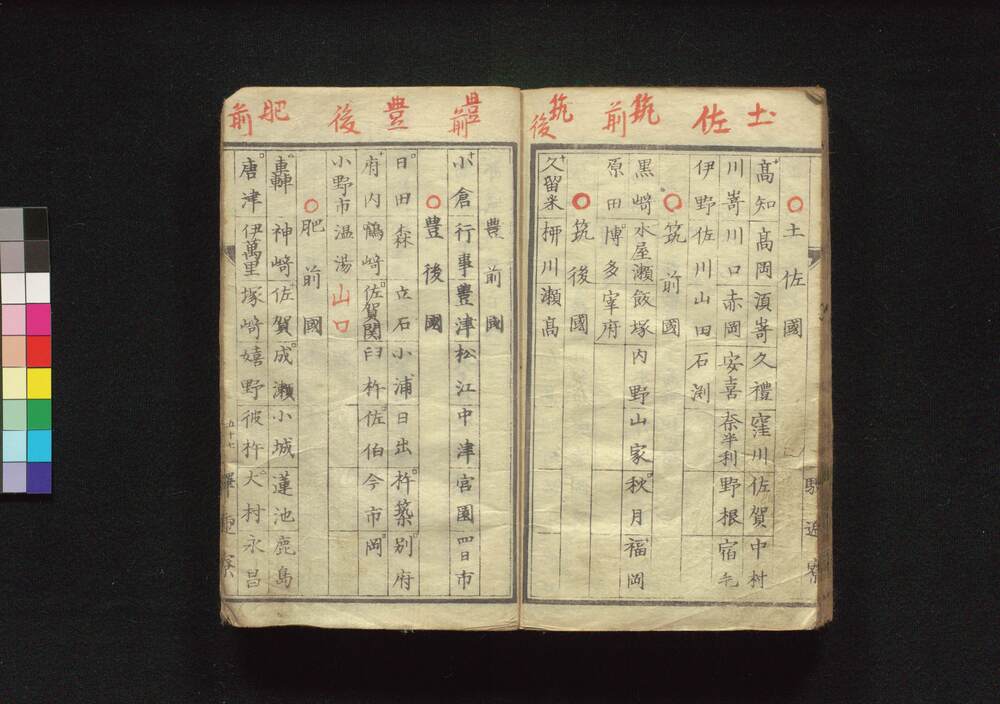 土佐
筑前
筑後
土佐國
髙知髙岡湏嵜久禮窪川佐賀中村
川嵜川口赤岡安喜奈半利野根宿毛
伊野佐川山田石渕
筑前國
黒﨑水屋瀬飯塚内野山家秋月福岡
原田博多宰府
筑後國
久留米栁川瀬髙
驛逓寮
豊前
豊後
肥前
豊前國
小倉行事豊津松江中津宮園四日市
豊後國
日田森立石小浦日出杵築别府
府内鶴﨑佐賀関臼杵佐伯今市岡
小野市温湯山口
肥前國
轟神﨑佐賀成瀬小城蓮池鹿島
唐津伊萬里塚﨑嬉野彼杵大村永昌
五十七
驛逓寮